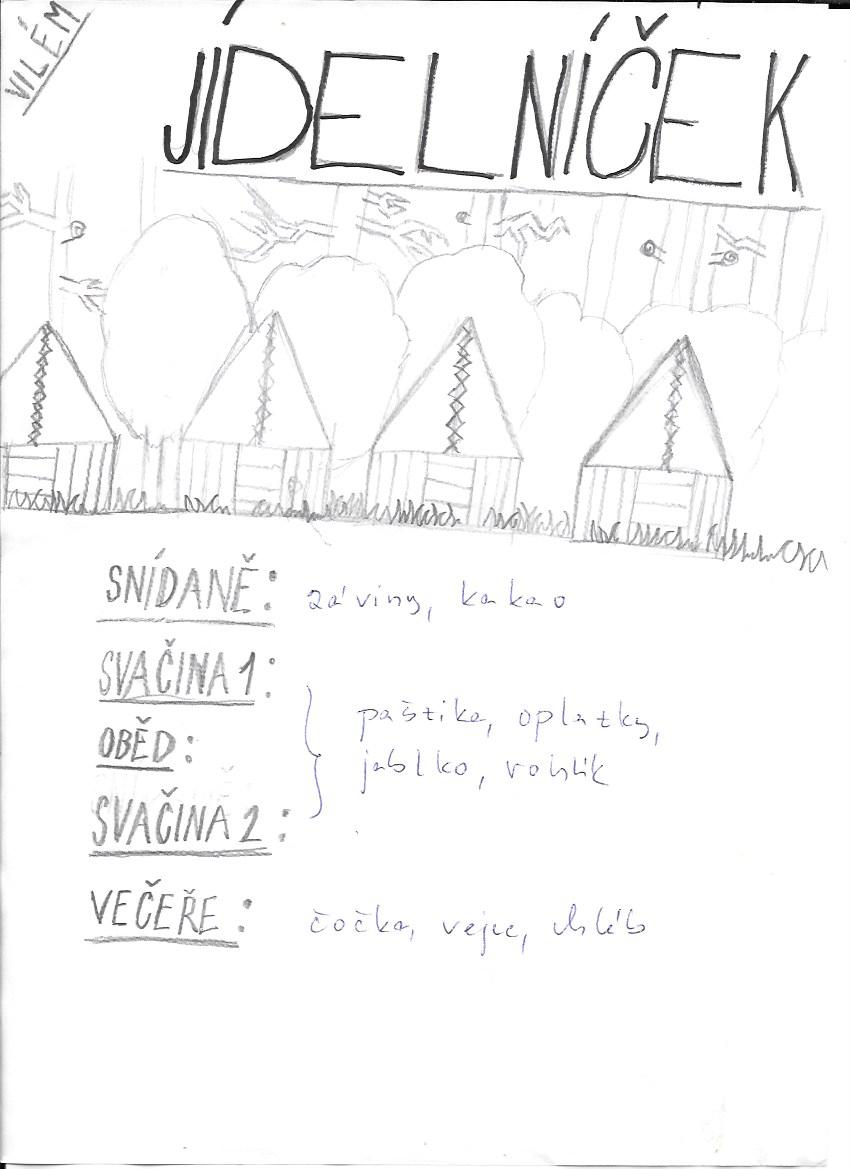 VILÉM
JÍDELNÍČEK
SNÍDANĚ: záviny, kakao
SVAČINA 1:
paštika, oplatky,
OBĚD:
jablko, rohlík
SVAČINA 2:
VEČEŘE: čočka, vejce, chléb